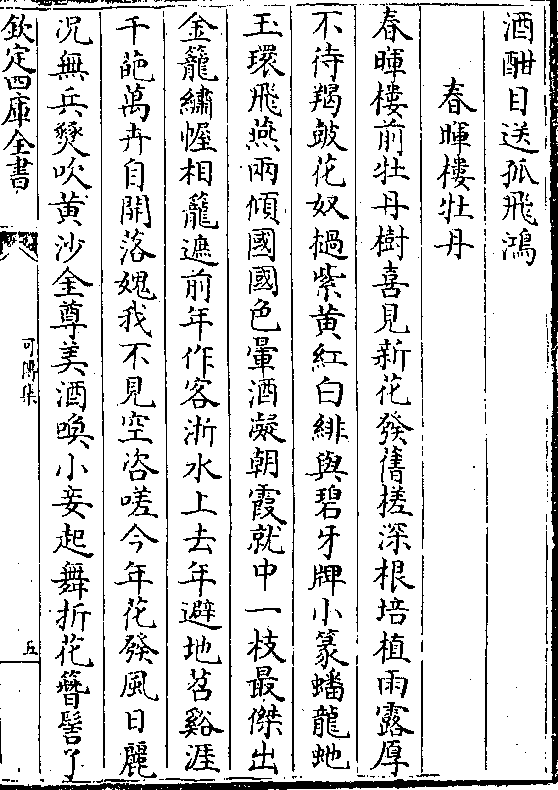 酒酣目送孤飛鴻
春暉樓牡丹
春暉樓前牡丹樹喜見新花發舊槎深根培植雨露厚
不待羯鼓花奴撾紫黄紅白緋與碧牙牌小篆蟠龍虵
玉環飛燕兩傾國國色暈酒凝朝霞就中一枝最傑出
金籠繡幄相籠遮前年作客浙水上去年避地苕谿涯
千葩萬卉自開落媿我不見空咨嗟今年花發風日麗
况無兵燹吹黄沙金尊美酒喚小妾起舞折花簪髻丫
欽定四庫全書
可傳集
五